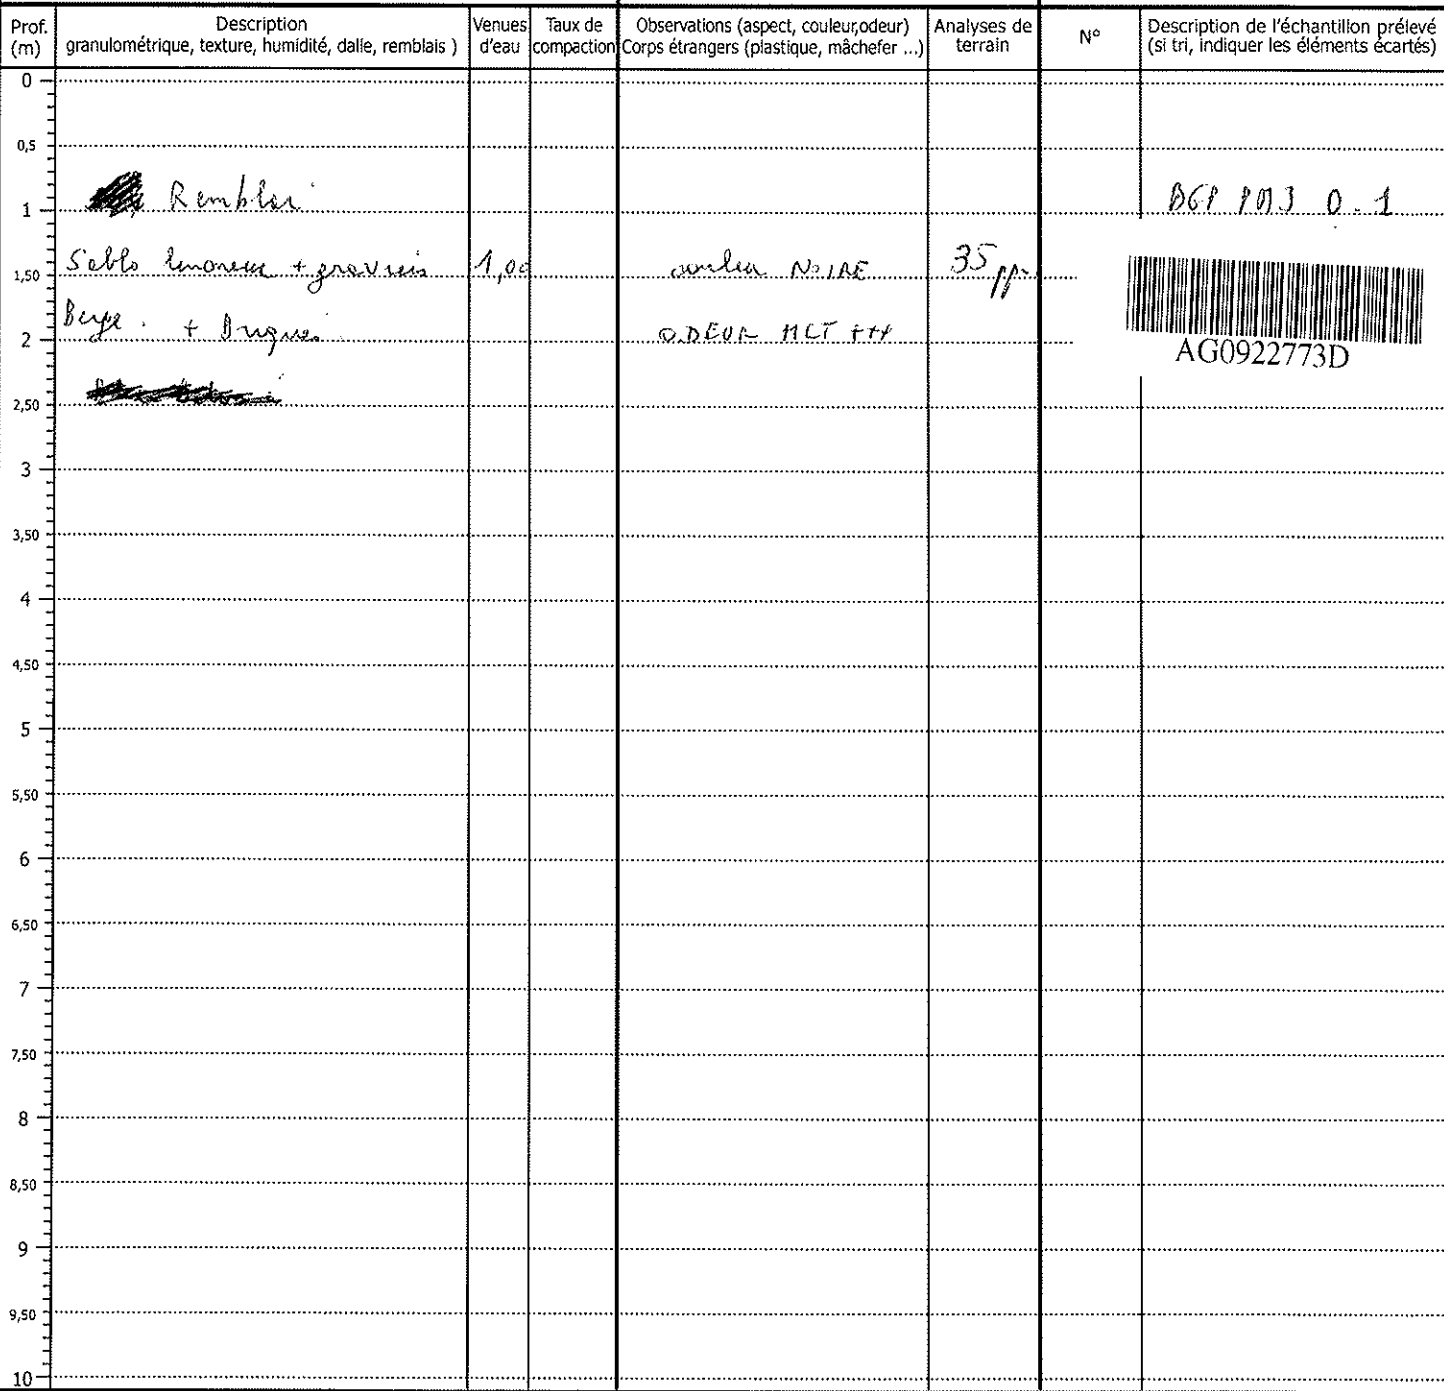 Prof. (m)
Description granulométrique, texture, humidité, dalle, remblais )
Venues d'eau
Taux de compaction
Observations (aspect, couleur,odeur) Corps étrangers (plastique, mâchefer ...)
Analyses de terrain
N°
Description de l'échantillon prélevé (si tri, indiquer les éléments écartés)
0
0,5
Remblai
1
0.1
Sablo limoneux + graviers 1,00 couleur NOIRE 35 ppm
1,50
+ Briques ODEUR HCT +++
2
AG0922773D
2,50
3
3,50
4
4,50
5
5,50
6
6,50
7
7,50
8
8,50
9
9,50
10